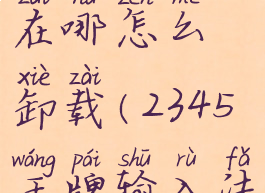 zài nǎ zěn me
在哪怎么
xiè zài
卸载(2345
wáng pái shū rù fǎ
王牌输入法